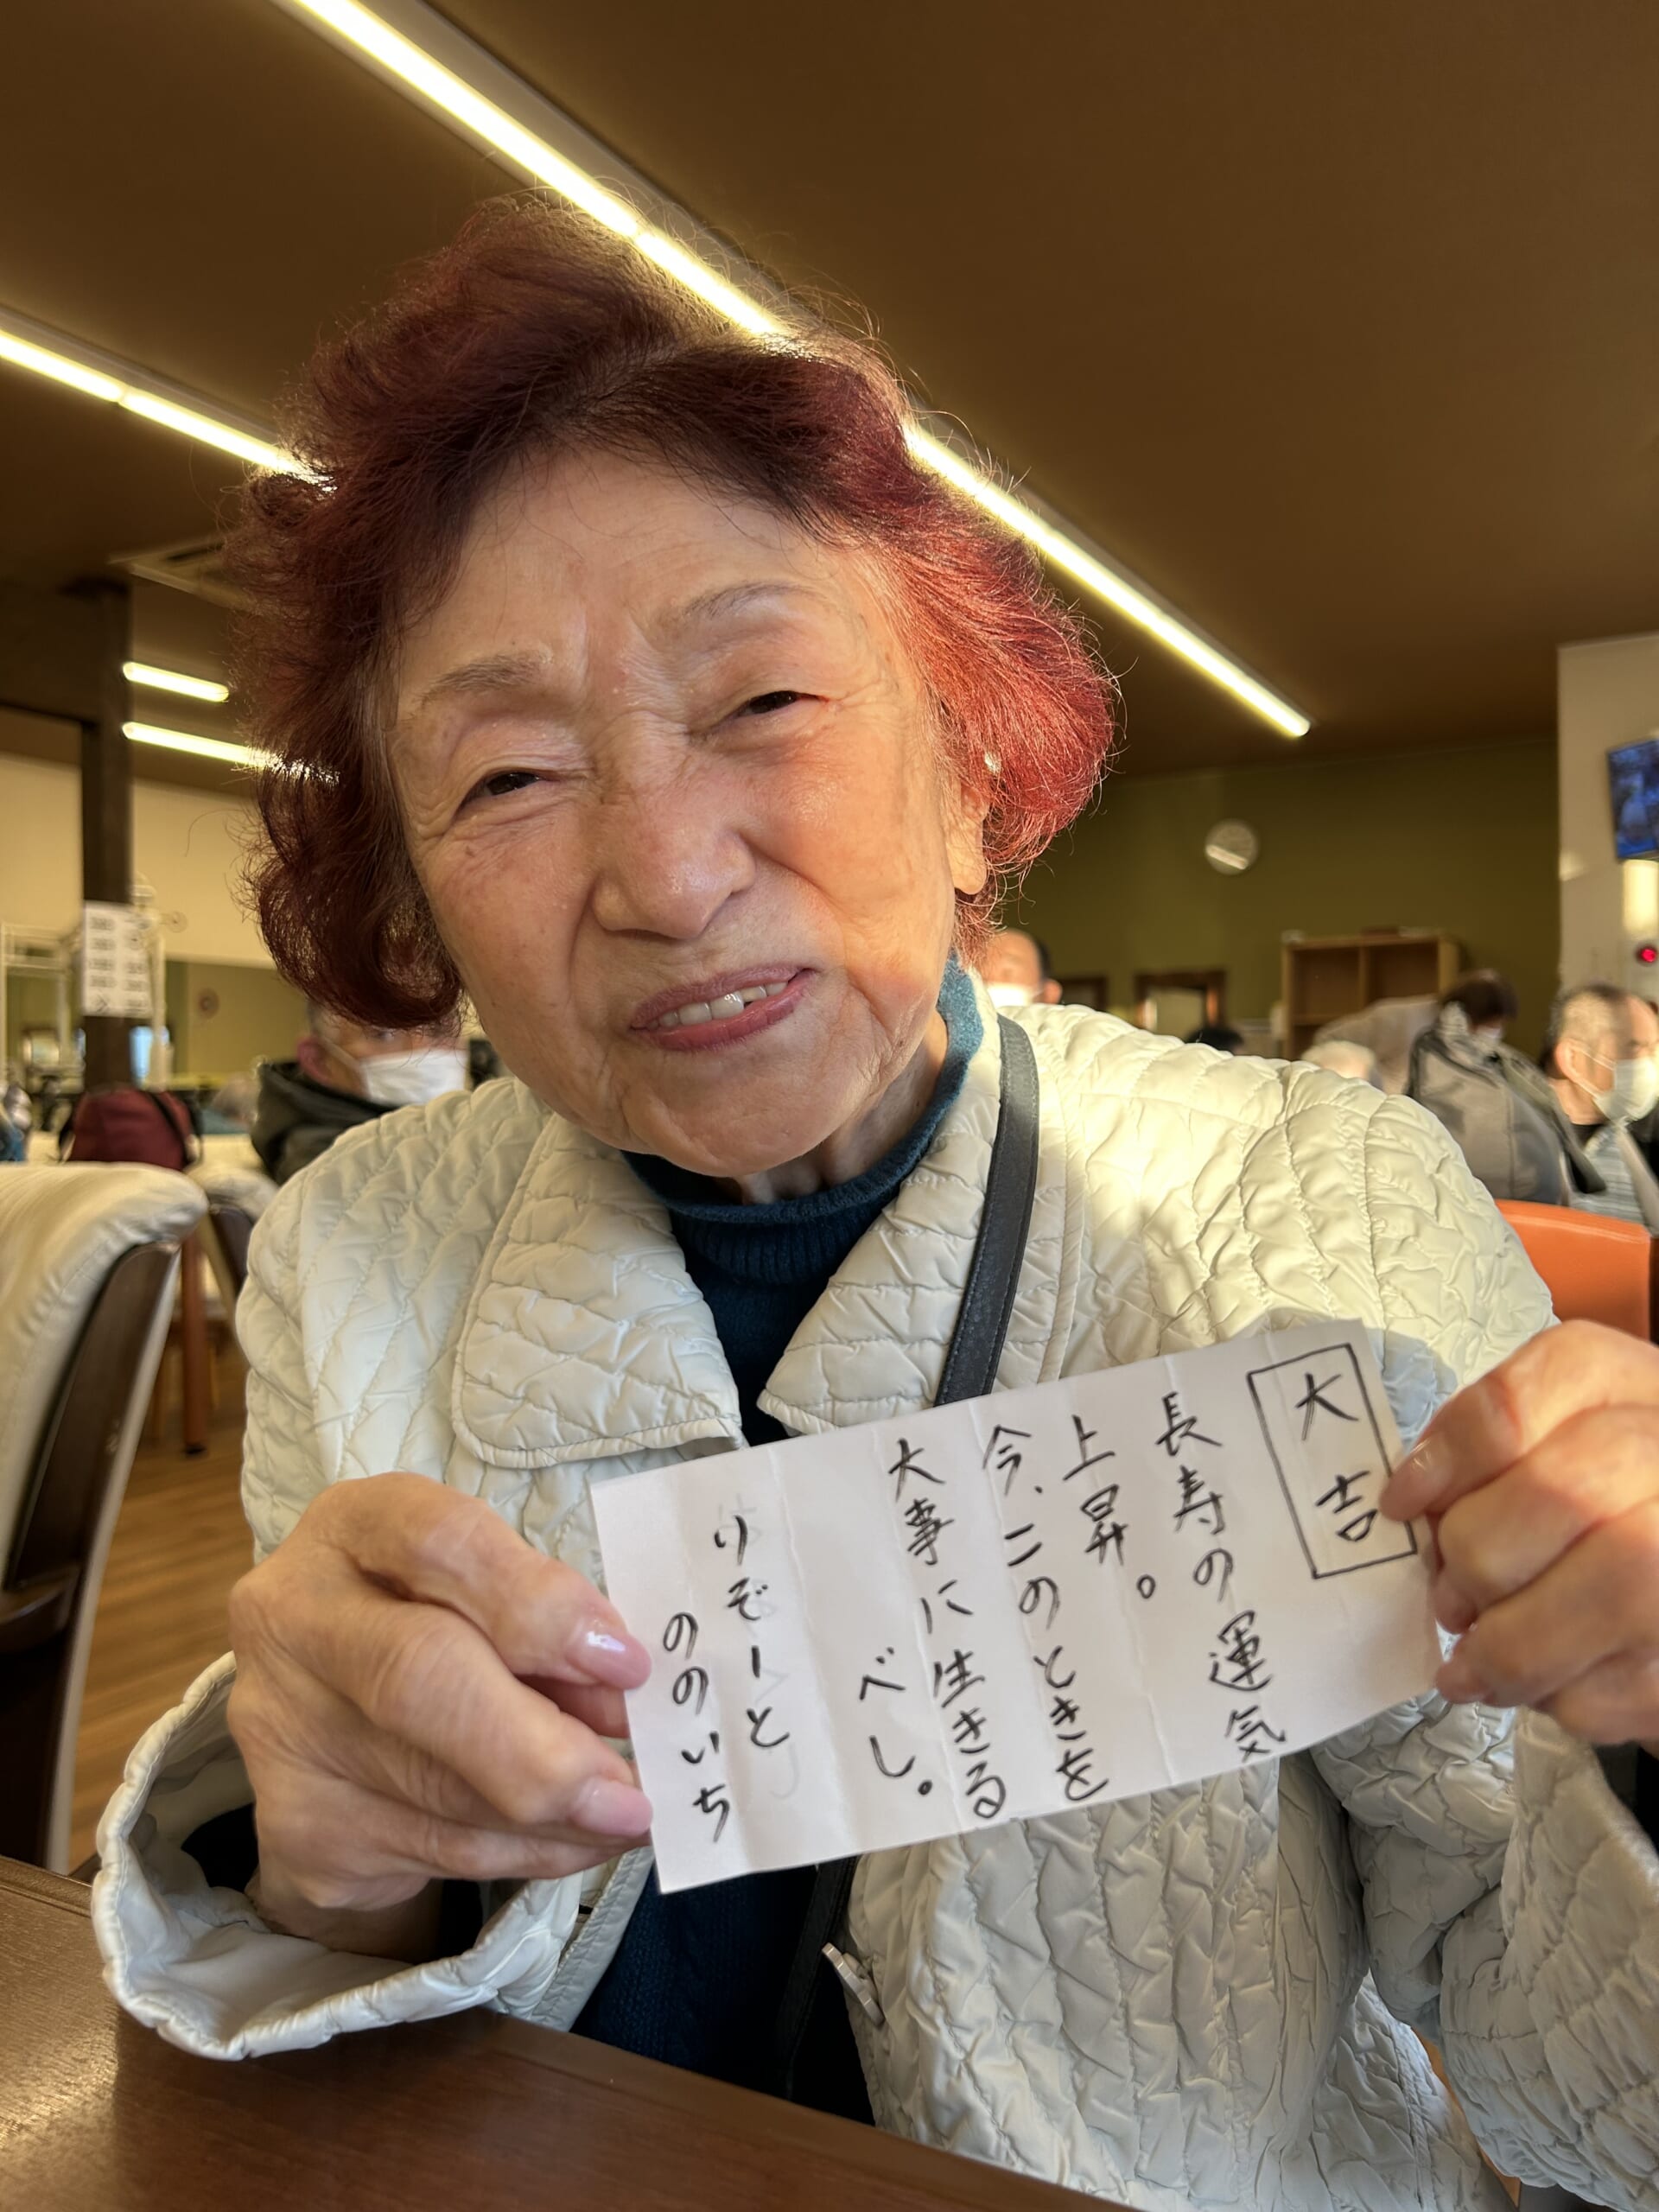 大吉
長寿の運気
上昇。
今、このときを
大事に生きる
べし。
りぞーと
ののいち